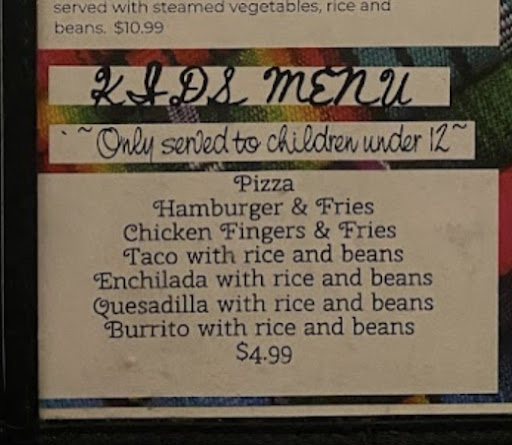 served with steamed vegetables, rice and
beans. $10.99
KIDS MENU
~Only served to children under 12~
Pizza
Hamburger & Fries
Chicken Fingers & Fries
Taco with rice and beans
Enchilada with rice and beans
Quesadilla with rice and beans
Burrito with rice and beans
$4.99